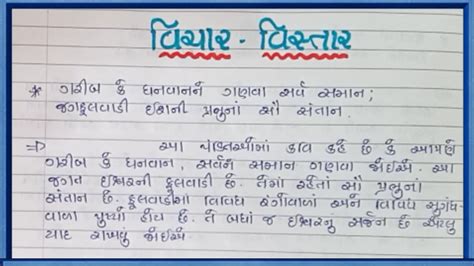 વિચાર - વિસ્તાર
* ગરીબ કે ધનવાનને ગણવા સર્વ સમાન;
જગફૂલવાડી ઈશની પ્રભુનાં સૌ સંતાન.
⇒ આ પંક્તિઓમાં કવિ કહે છે કે આપણે
ગરીબ કે ધનવાન, સર્વને સમાન ગણવા જોઈએ. આ
જગત ઈશ્વરની ફૂલવાડી છે. તેમાં રહેતાં સૌ પ્રભુનાં
સંતાન છે. ફૂલવાડીમાં વિવિધ રંગોવાળાં અને વિવિધ સુગંધ-
વાળાં પુષ્પો હોય છે. તે બધાં જ ઈશ્વરનું સર્જન છે એટલું
યાદ રાખવું જોઈએ.